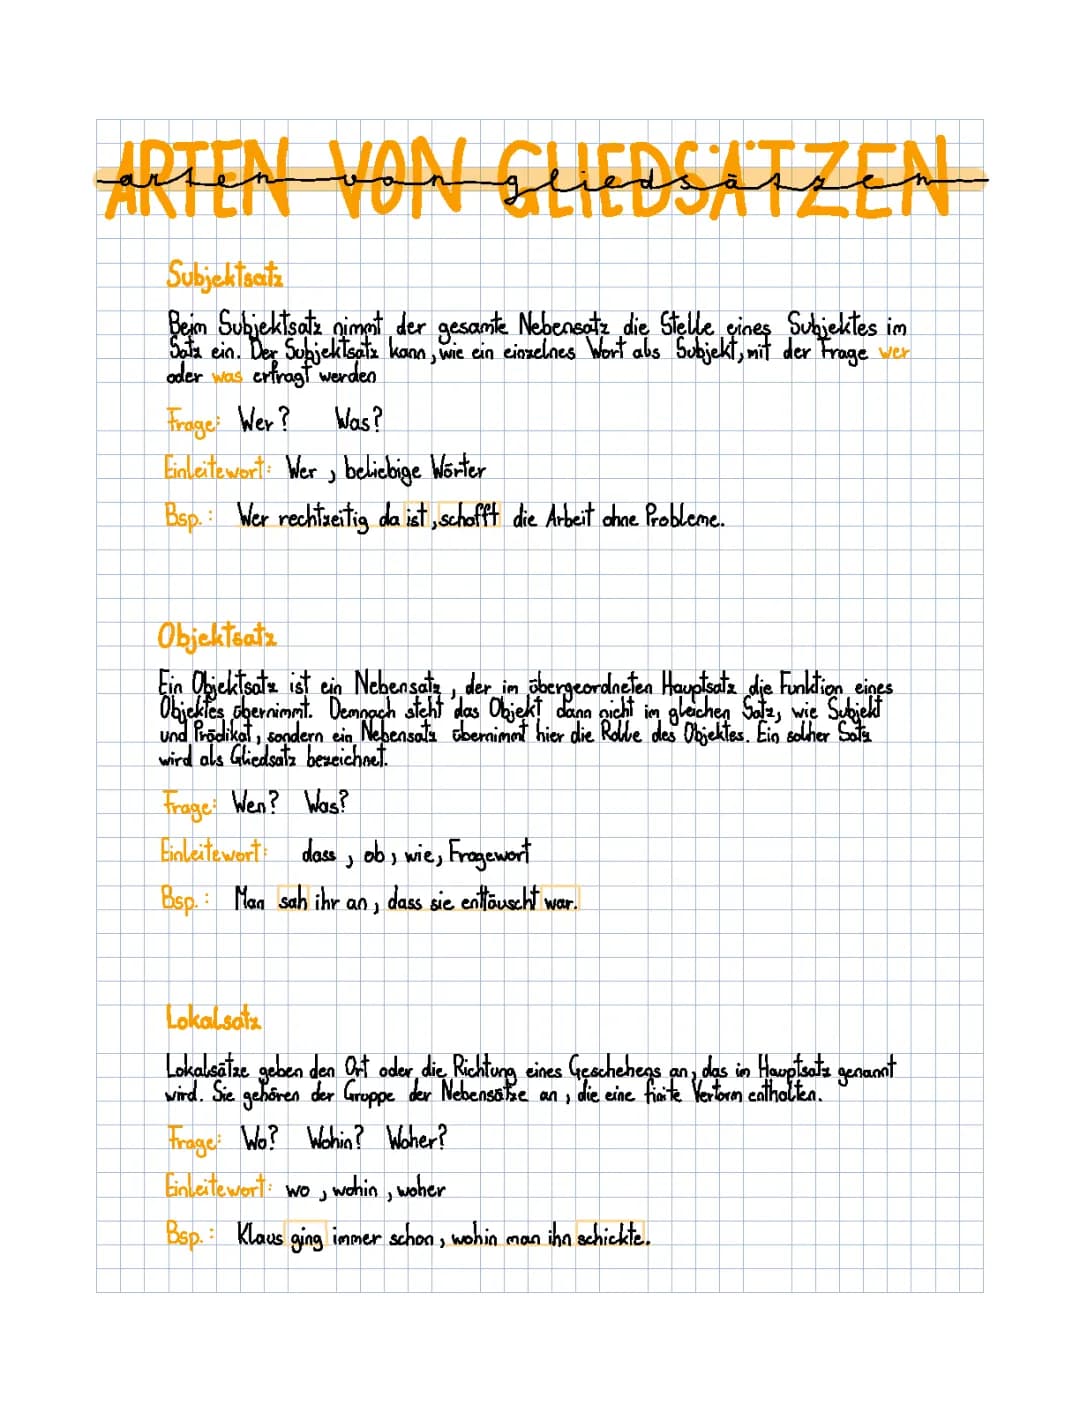 ARTEN VON GLIEDSÄTZEN
arten von gliedsätzen
Subjektsatz
Beim Subjektsatz nimmt der gesamte Nebensatz die Stelle eines Subjektes im
Satz ein. Der Subjektsatz kann, wie ein einzelnes Wort als Subjekt, mit der Frage wer
oder was erfragt werden
Frage: Wer? Was?
Einleitewort: Wer, beliebige Wörter
Bsp.: Wer rechtzeitig da ist, schafft die Arbeit ohne Probleme.
Objektsatz
Ein Objektsatz ist ein Nebensatz, der im übergeordneten Hauptsatz die Funktion eines
Objektes übernimmt. Demnach steht das Objekt dann nicht im gleichen Satz, wie Subjekt
und Prädikat, sondern ein Nebensatz übernimmt hier die Rolle des Objektes. Ein solcher Satz
wird als Gliedsatz bezeichnet.
Frage: Wen? Was?
Einleitewort: dass, ob, wie, Fragewort
Bsp.: Man sah ihr an, dass sie enttäuscht war.
Lokalsatz
Lokalsätze geben den Ort oder die Richtung eines Geschehens an, das in Hauptsatz genannt
wird. Sie gehören der Gruppe der Nebensätze an, die eine finite Verform enthalten.
Frage: Wo? Wohin? Woher?
Einleitewort: wo, wohin, woher
Bsp.: Klaus ging immer schon, wohin man ihn schickte.